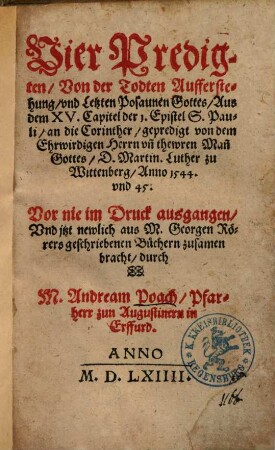 Vier Predig-
ten/ Von der Todten Aufferste-
hung/ vnd Letzten Posaunen Gottes/ Aus
dem XV. Capitel der 1. Epistel S. Pau-
li/ an die Corinther/ gepredigt von dem
Ehrwirdigen Herrn vñ thewren Mañ
Gottes/ D. Martin. Luther zu
Wittenberg/ Anno 1544.
vnd 45.
Vor nie im Druck ausgangen/
Vnd jtzt newlich aus M. Georgen Rö-
rers geschriebenen Büchern zusamen
bracht/ durch
M. Andream Poach/ Pfar-
herr zun Augustinern in
Erffurd.
ANNO
M. D. LXIIII.
K. KREISBIBLIOTHEK
REGENSBURG